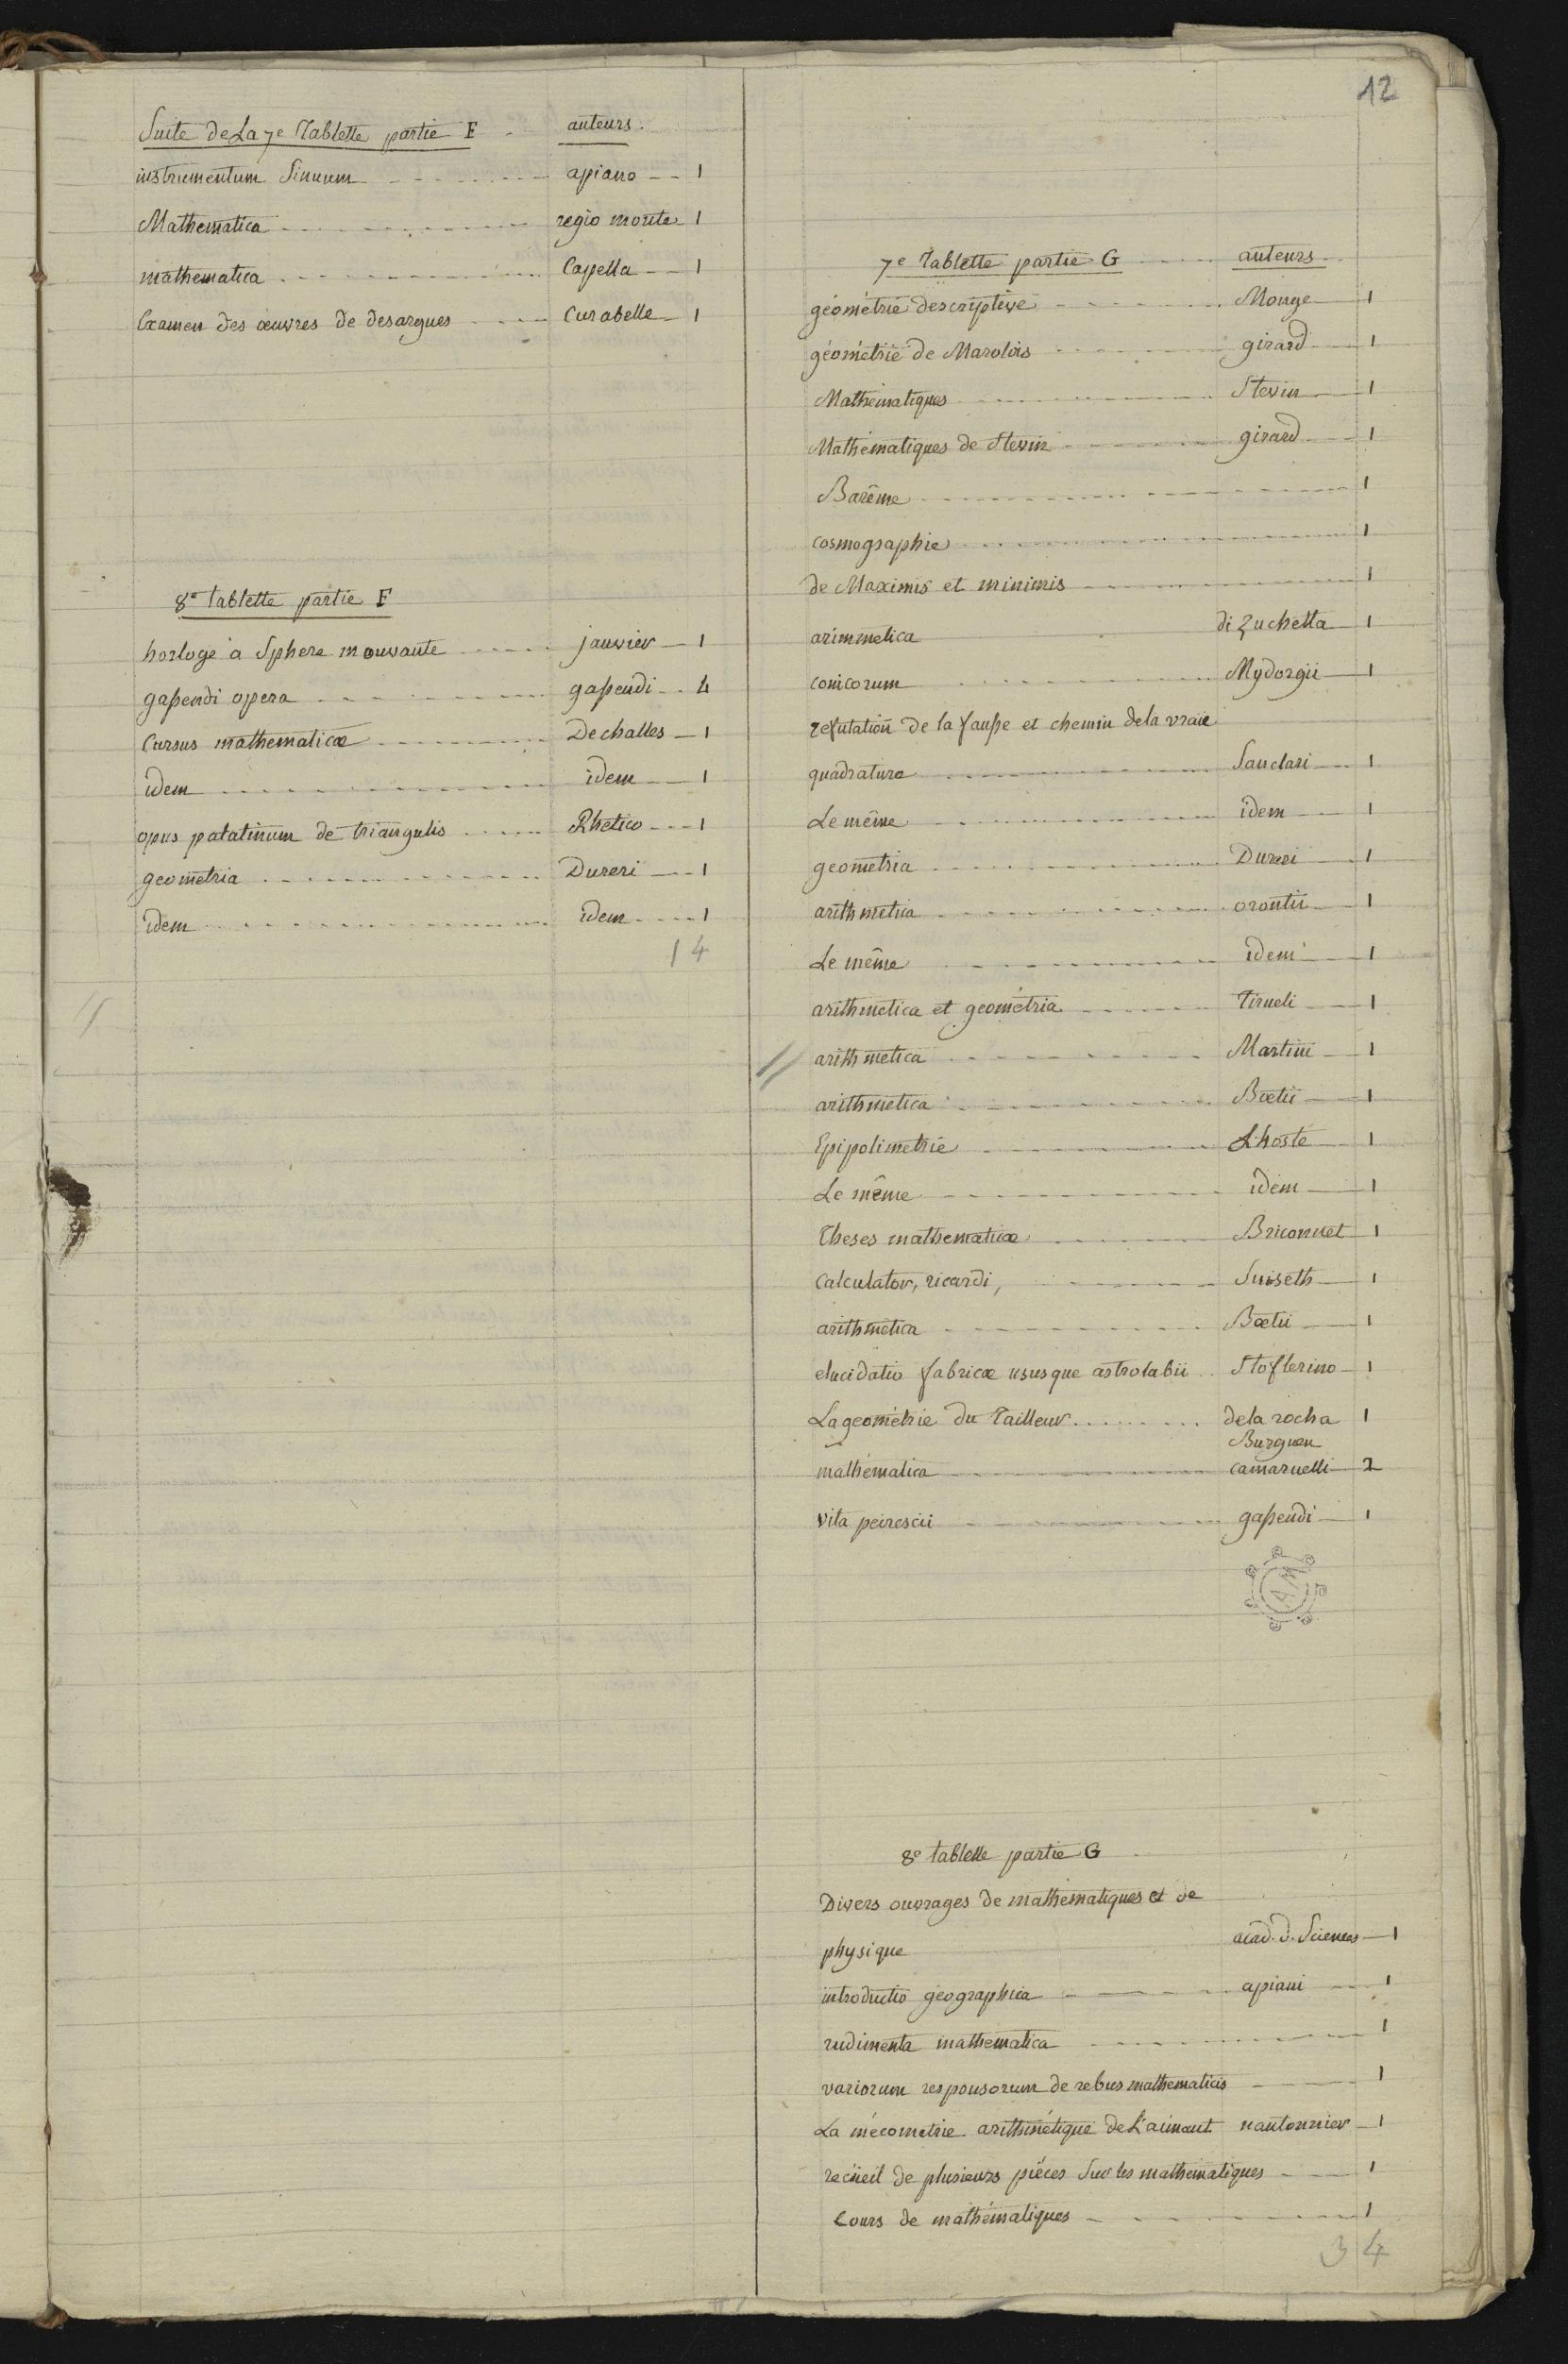 12
Suite de La 7e Tablette partie F - auteurs.
instrumentum Sinuum apiano 1
Mathematica regio monte 1
mathematica Capella 1
Examen des œuvres de desargues Curabelle 1
8e tablette partie F
horloge à Sphere mouvante janvier 1
gaßendi opera gaßendi 4
Cursus mathematicæ Dechalles 1
idem idem 1
opus palatinum de triangulis Rhetico 1
geometria Dureri 1
idem idem 1
14
7e Tablette partie G auteurs
géométrie descriptive Monge 1
géométrie de Marolois girard 1
Mathématiques Stevin 1
Mathématiques de Stevin girard 1
Barême 1
cosmographie 1
de Maximis et minimis 1
arimmetica di Zuchetta 1
conicorum Mydorgii 1
refutation de la faußе et chemin dela vraie
quadrature Sanclari 1
Le même idem 1
geometria Dureri 1
arithmetica orontii 1
Le même idem 1
arithmetica et geométria Tirueli 1
arithmetica Martini 1
arithmetica Bœtii 1
Epipolimetrie Lhoste 1
Le même idem 1
Theses mathematicæ Briconnet 1
Calculator, ricardi, Suiseth 1
arithmetica Bœtii 1
elucidatio fabricæ ususque astrolabii Stoflerino 1
La geométrie du Tailleur dela rocha 1
Burguen
mathématica camaruelli 2
vita peirescii gaßendi 1
8e tablette partie G
Divers ouvrages de mathématiques et de
physique acad. d. Sciences 1
introductio geographica apiani 1
rudimenta mathematica 1
variorum responsorum de rebus mathematicis 1
La mécometrie arithmétique de L'aimant nautonnier 1
recüeil de plusieurs piéces Sur les mathematiques 1
Cours de mathématiques 1
34